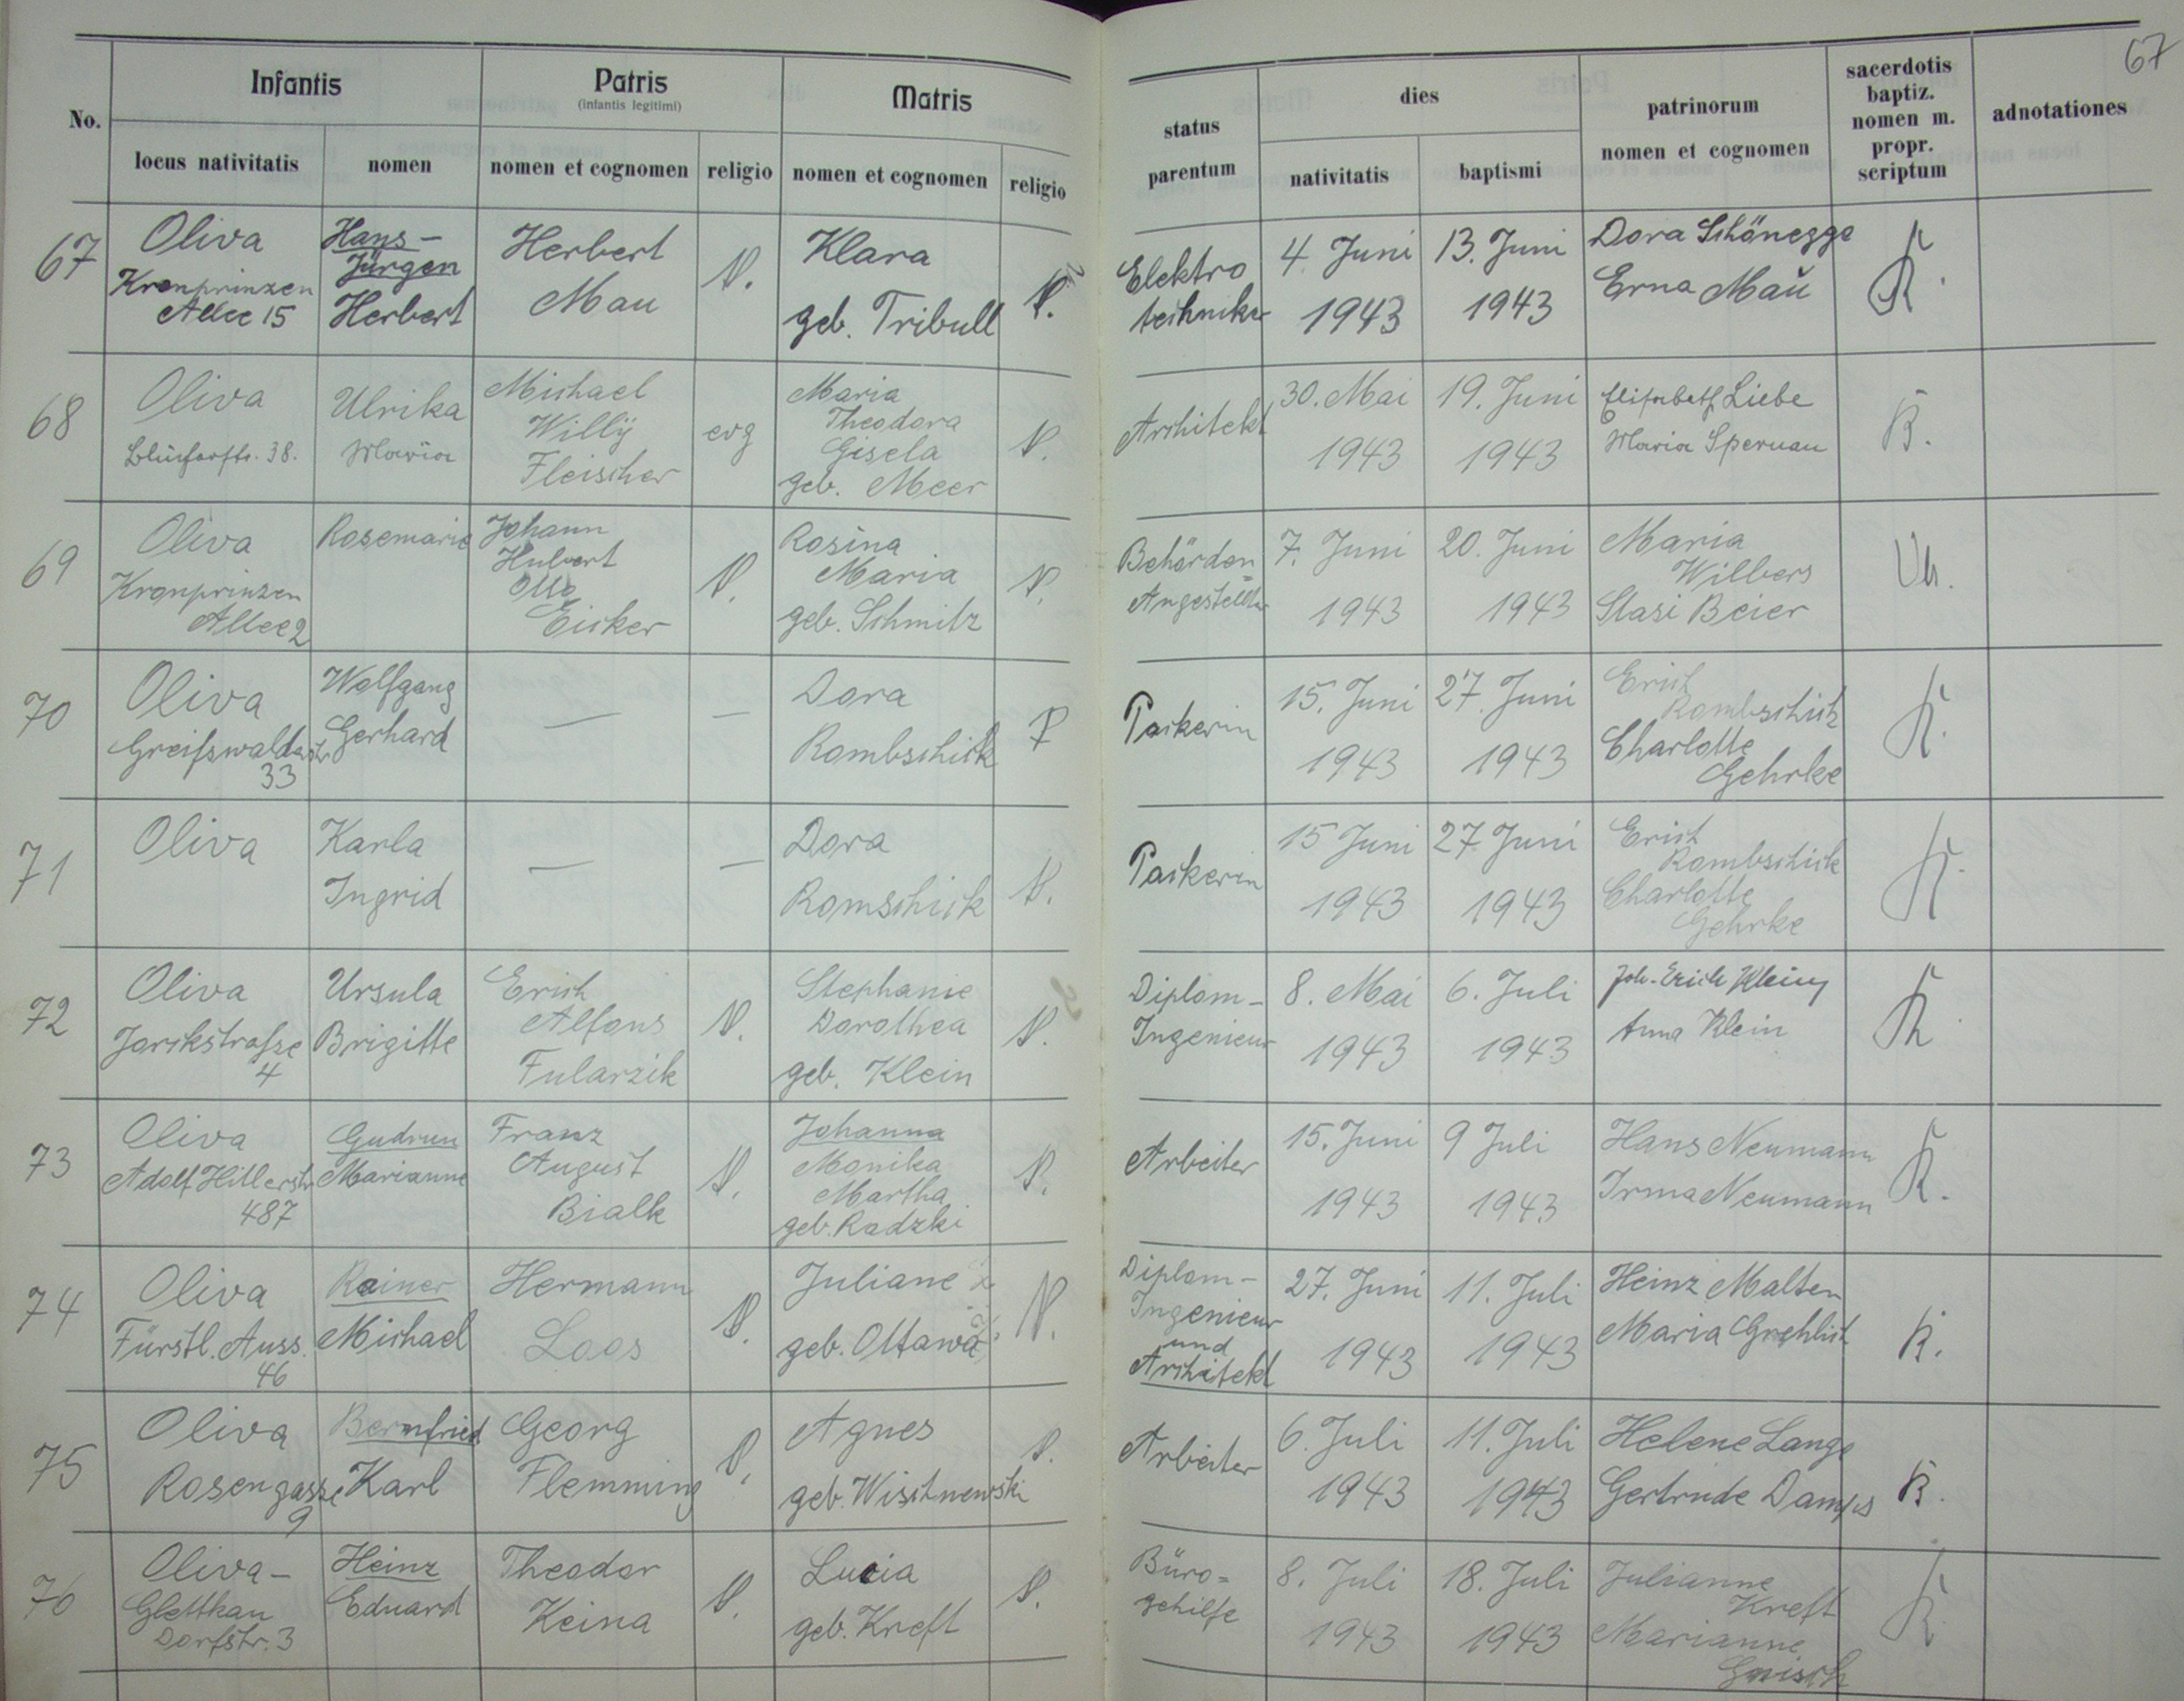 67
Infantis
Patris
(infantis legitimi)
Matris
status parentum
dies
patrinorum nomen et cognomen
sacerdotis baptiz. nomen m. propr. scriptum
adnotationes
No.
locus nativitatis
nomen
nomen et cognomen
religio
nomen et cognomen
religio
nativitatis
baptismi
67
Oliva
Kronprinzen
Allee 15
Hans-
Jürgen
Herbert
Herbert
Mau
Klara
geb. Tribull
Elektro
techniker
4. Juni
1943
13. Juni
1943
Dora Schönegge
Erna Maŭ
K.
68
Oliva
Blücherstr. 38.
Ulrika
Maria
Michael
Willÿ
Fleischer
evg
Maria
Theodora
Gisela
geb. Meer
Architekt
30. Mai
1943
19. Juni
1943
Elisabeth Liebe
Maria
K.
69
Oliva
Kronprinzen
Allee 2
Rosemarie
Johann
Hubert
Otto
Eicker
Rosina
Maria
geb. Schmitz
Behörden=
Angestellter
7. Juni
1943
20. Juni
1943
Maria
Wilbers
Stasi Beier
70
Oliva
Greifswalderstr
33
Wolfgang
Gerhard
—
—
Dora
Rombschick
Packerin
15. Juni
1943
27. Juni
1943
Erich
Rombschick
Charlotte
Gehrke
K.
71
Oliva
Karla
Ingrid
—
—
Dora
Romschick
Packerin
15 Juni
1943
27 Juni
1943
Erich
Rombschick
Charlotte
Gehrke
K.
72
Oliva
Jorckstrasse
4
Ursula
Brigitte
Erich
Alfons
Fularzik
Stephanie
Dorothea
geb. Klein
Diplom-
Ingenieur
8. Mai
1943
6. Juli
1943
Joh. Erich Klein
Anna Klein
K
73
Oliva
Adolf Hitlerstr
487
Gudrun
Marianne
Franz
August
Bialk
Johanna
Monika
Martha
geb. Radzki
Arbeiter
15. Juni
1943
9 Juli
1943
Hans Neumann
Irma Neumann
K.
74
Oliva
Fürstl. Auss.
46
Rainer
Michael
Hermann
Laos
Juliane
geb. Ottawa
Diplom-
Ingenieur
und
Architekt
27. Juni
1943
11. Juli
1943
Heinz Malten
Maria
K.
75
Oliva
Rosengasse
9
Bernfried
Karl
Georg
Flemming
Agnes
geb. Wischnewski
Arbeiter
6. Juli
1943
11. Juli
1943
Helene Lange
Gertrude Damps
K.
76
Oliva-
Glettkau
Dorfstr. 3
Heinz
Eduard
Theodor
Keina
Lucia
geb. Kreft
Büro=
gehilfe
8. Juli
1943
18. Juli
1943
Julianne
Kreft
Marianne
K